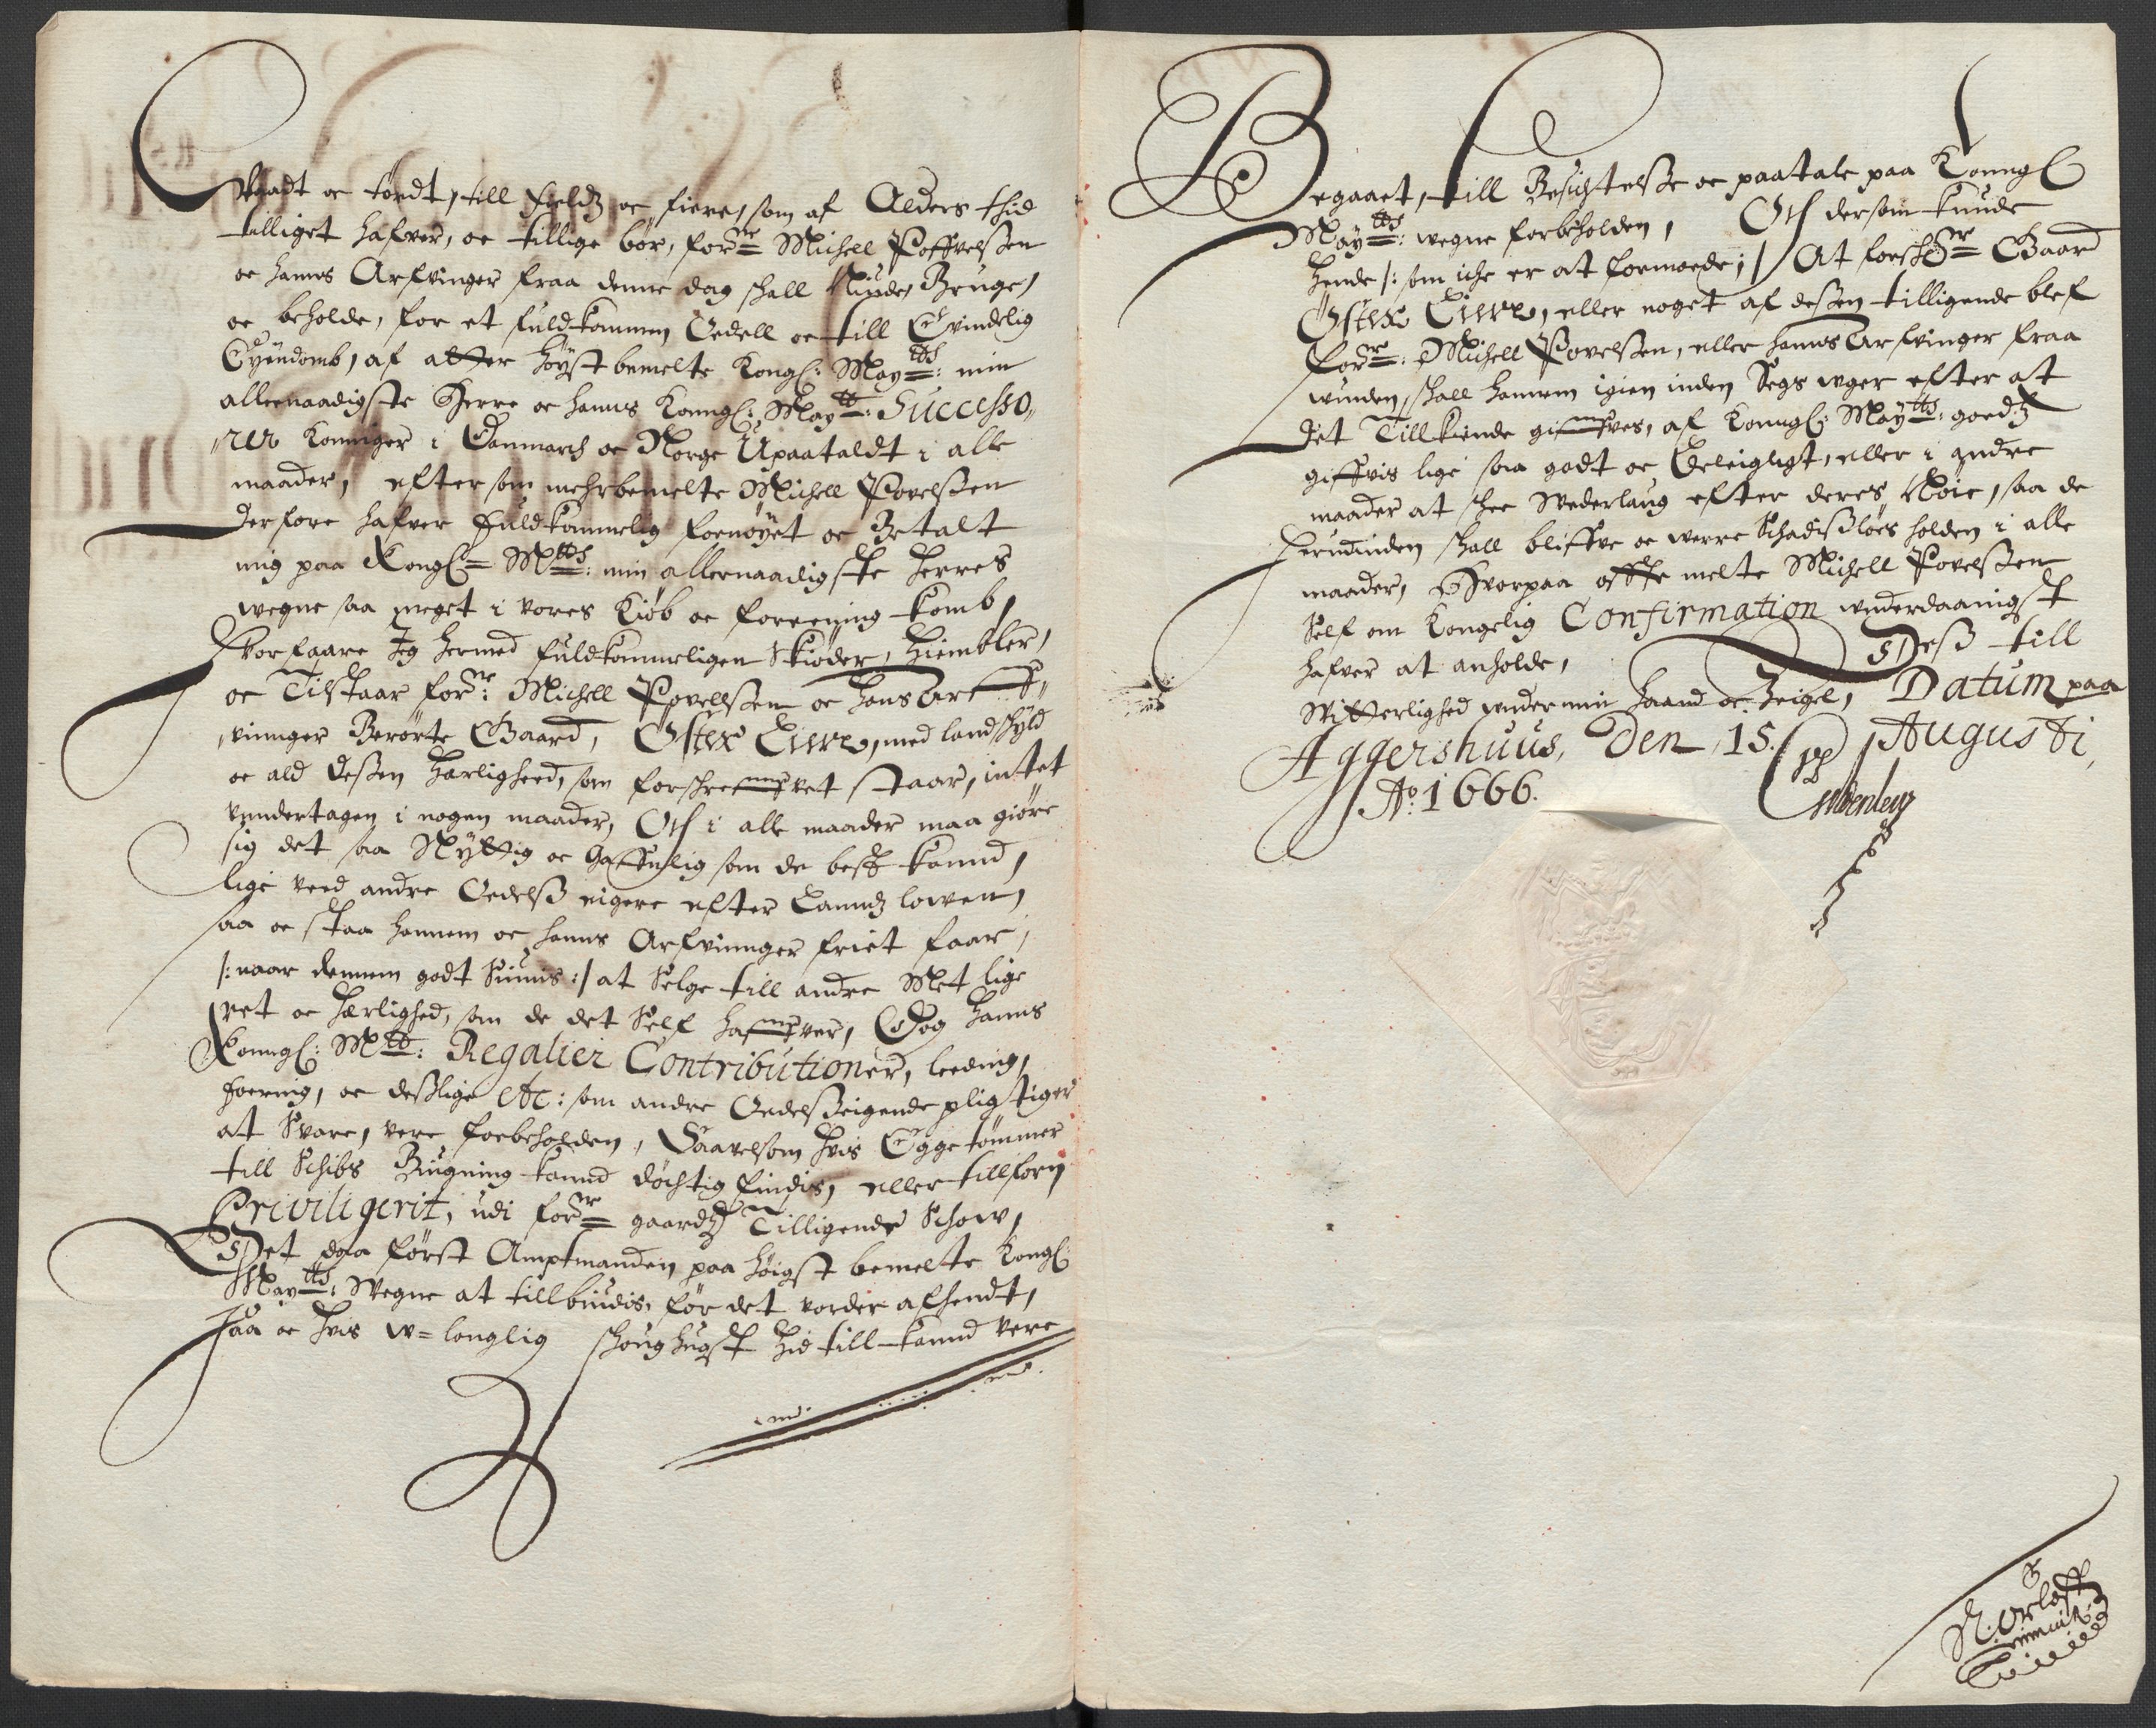 Vaadt oc tørdt, till fieldz oc fiere, som af Alders thid
tilliget hafver, oc tillige bør, forne Michell Poffvelssen
oc hanns Arfvinger fraa denne dag schall Niude, Bruge,
oc beholde, for et fuldkommen Oedell oc till Evindelig
Eyendomb, af atter høyst bemelte Kongl: Maytts: min
allernaadigste Herre oc hanns Konngl: Maytts: Successo,,
,,rer Konniger i Danmarch oc Norge Upaataldt i alle
maader, eftersom mehrbemelte Michell Povelssen
derfore hafver fuldkommelig fornøyet oc Betalt
mig paa Kongl: Mtts: min allernaadigste Herres
wegne saa meget i vores Kiøb oc foreening komb,
Hvorfaare Jeg hermed fuldkommeligen Skiøder, Hiembler,
oc Tilstaar forne: Michell Povelssen oc hans Arff,,
,,vinnger Berørte Gaard, Øster Eiwre, med landschyld
oc ald dessen Herligheed, som forschrefvet staar, intet
vndertagen i nogen maader, Och i alle maader maa giøre
sig det saa Nyttig oc Gaffnlig som de best kannd,
lige veed andre Oedelss eigere efter Lanndz lowen,
saa oc staa hannem oc hanns Arfvinnger friet faar,
/: naar dennem godt Siunis :/ at Selge till andre Met lige
ret oc Herlighed, som de det Self hafver, Dog Hanns
Konngl: Mtts: Regalier Contributioner, leeding,
foering, oc desslige etc: som andre Oedelsseigende pligtiger
at Svare, vere forbeholden, Saavelsom hvis Eggetømmer
till Schibs Bygning kannd døchtig findis, eller tillforn
Priviligerit, udi forne gaardz Tilligende Schow,
Det daa først Amptmanden paa høigst bemelte Kongl:
Maytts: Wegne at tillbiudis, før det vorder afhendt,
Saa oc hvis w=longlig schoug hugst hid till kannd vere
Begaaet, till Besichtelsse oc paatale paa Konngl
Maytts: wegne forbeholden, Och dersom kunde
hende /: som iche er at formoede :/ At forschne Gaard
Øster Eiwre, eller noget af dessen tilligende blef
forne: Michell Povelssen, eller hanns Arfvinger fraa
wunden, schall hannem igien inden Segs wger efter at
det Tillkiende gifves, af Konngl: Maytts: goedz
giffvis lige saa godt oc Beleigligt, eller i andre
maader at schee Wederlaug efter deres Nøie, saa de
herudinden schall bliffve oc werre Schadissløes holden i alle
maader, Hvorpaa ofte melte Michell Povelssen
Self om Kongelig Confirmation wnderdaanigst
hafver at anholde, Dess till
Witterlighed wnder min haand oc Zeigl, Datum paa
Aggershuus, Den 15. Augusti,
Ao: 1666.